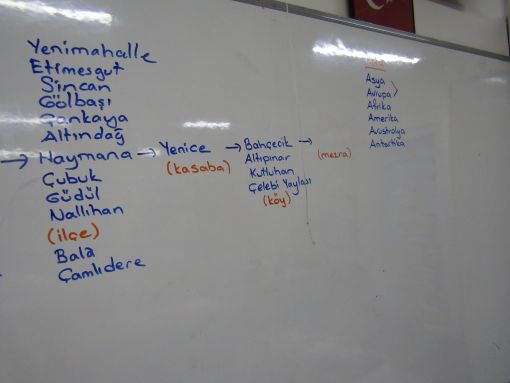 Yenimahalle
Etimesgut
Sincan
Gölbaşı
Çankaya
Altındağ
→ Haymana → Yenice → Bahçecik →
Çubuk
Güdül
Nallıhan
(ilçe)
Bala
Çamlıdere
(kasaba)
Altıpınar
Kutluhan
Çelebi Yaylası
(köy)
(mezra)
Asya
Avrupa
Afrika
Amerika
Avustralya
Antartika